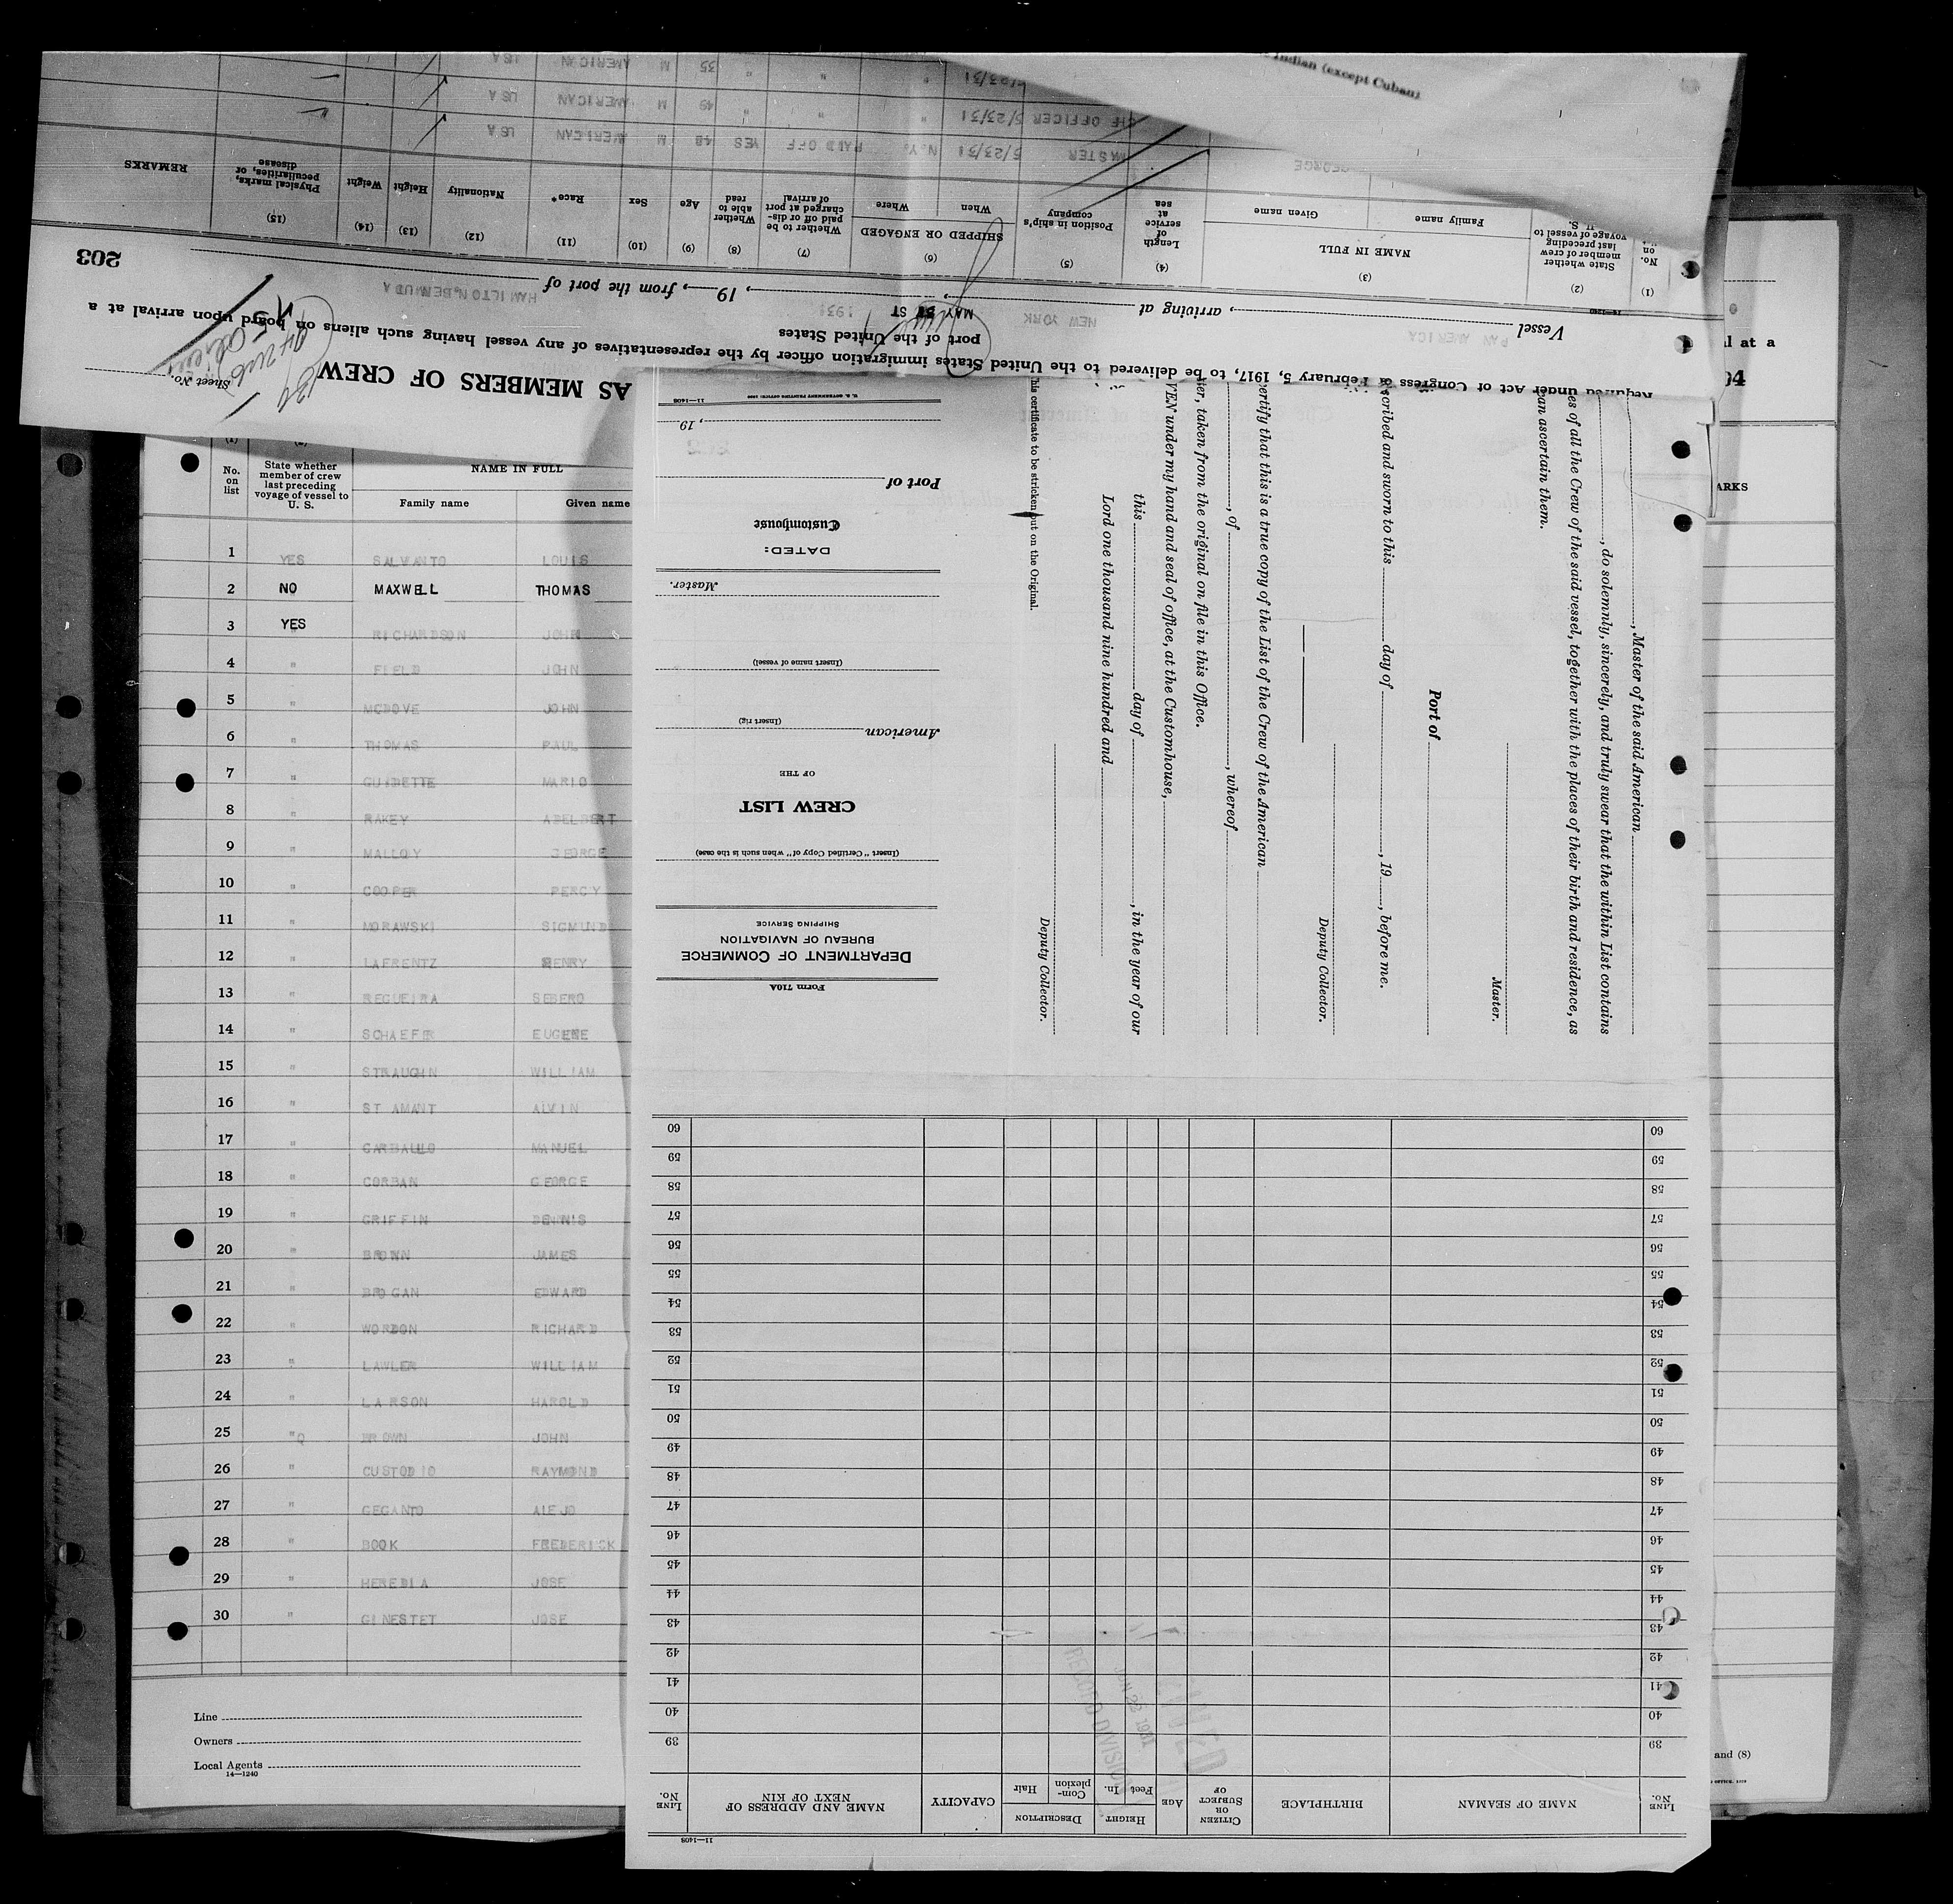 Indian (except Cuban)
35 M AMERICAN USA
5/23/31
CHF OFFICER 5/23/31 " " " 49 M AMERICAN USA
GEORGE MASTER 5/23/31 N.Y. PAID OFF YES 48 M AMERICAN USA
(1) No. on
(2) State whether member of crew last preceding voyage of vessel to U. S.
(3) NAME IN FULL
Family name Given name
(4) Length of service at sea
(5) Position in ship's company
(6) SHIPPED OR ENGAGED
When Where
(7) Whether to be paid off or discharged at port of arrival
(8) Whether able to read
(9) Age
(10) Sex
(11) Race*
(12) Nationality
(13) Height
(14) Weight
(15) Physical marks, peculiarities, or disease
REMARKS
Vessel PAN AMERICA, arriving at NEW YORK, MAY 31 ST, 1931, 19, from the port of HAMILTON, BERMUDA
203
port of the United States
Required under Act of Congress of February 5, 1917, to be delivered to the United States immigration officer by the representatives of any vessel having such aliens on board upon arrival at a
AS MEMBERS OF CREW
Sheet No.
14—1240
al at a
ARKS
and (8)
No. on list
State whether member of crew last preceding voyage of vessel to U. S.
NAME IN FULL
Family name Given name
1 YES SALVANTO LOUIS
2 NO MAXWELL THOMAS
3 YES RICHARDSON JOHN
4 " FIELD JOHN
5 " MCDOVE JOHN
6 " THOMAS PAUL
7 " GUIDETTE MARIO
8 " RAKEY ADELBERT
9 " MALLOY GEORGE
10 " COOPER PERCY
11 " MORAWSKI SIGMUND
12 " LAFRENTZ HENRY
13 " REGUEIRA SEBERO
14 " SCHAEFER EUGENE
15 " STRAUGHN WILLIAM
16 " ST AMANT ALVIN
17 " CARBALLO MANUEL
18 " CORBAN GEORGE
19 " GRIFFIN DENNIS
20 " BROWN JAMES
21 " BROGAN EDWARD
22 " WORDON RICHARD
23 " LAWLER WILLIAM
24 " LARSON HAROLD
25 " BROWN JOHN
26 " CUSTODIO RAYMOND
27 " GEGANTO ALEJO
28 " BOOK FREDERICK
29 " HEREDIA JOSE
30 " GINESTET JOSE
Line
Owners
Local Agents
14—1240
Form 710A
DEPARTMENT OF COMMERCE
BUREAU OF NAVIGATION
SHIPPING SERVICE
(Insert "Certified Copy of" when such is the case)
CREW LIST
OF THE
American
(Insert rig)
(Insert name of vessel)
Master.
DATED:
Customhouse
Port of
, 19
U. S. GOVERNMENT PRINTING OFFICE
11—1408
, Master of the said American
, do solemnly, sincerely, and truly swear that the within List contains
es of all the Crew of the said vessel, together with the places of their birth and residence, as
an ascertain them.
Master.
Port of
scribed and sworn to this day of , 19 , before me.
Deputy Collector.
ertify that this is a true copy of the List of the Crew of the American
, of , whereof
er, taken from the original on file in this Office.
VEN under my hand and seal of office, at the Customhouse,
this day of , in the year of our
Lord one thousand nine hundred and
Deputy Collector.
his certificate to be stricken out on the Original.
LINE No.
NAME OF SEAMAN
BIRTHPLACE
CITIZEN OR SUBJECT OF
AGE
HEIGHT
Feet In.
DESCRIPTION
Complexion Hair
CAPACITY
NAME AND ADDRESS OF NEXT OF KIN
LINE No.
39 39
40 40
41 41
42 42
43 43
44 44
45 45
46 46
47 47
48 48
49 49
50 50
51 51
52 52
53 53
54 54
55 55
56 56
57 57
58 58
59 59
60 60
11—1408
RECORD DIVISION